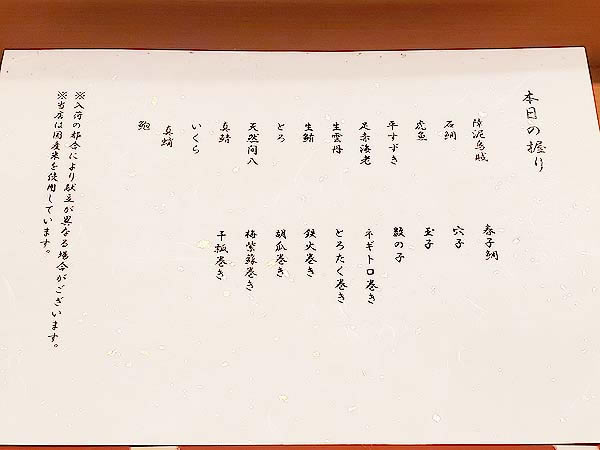 本日の握り
障泥烏賊
石鯛
虎魚
平すずき
足赤海老
生雲丹
生鯖
とろ
天然間八
真鯖
いくら
真蛸
鮑
春子鯛
穴子
玉子
数の子
ネギトロ巻き
とろたく巻き
鉄火巻き
胡瓜巻き
梅紫蘇巻き
干瓢巻き
※入荷の都合により献立が異なる場合がございます。
※当店は国産米を使用しています。